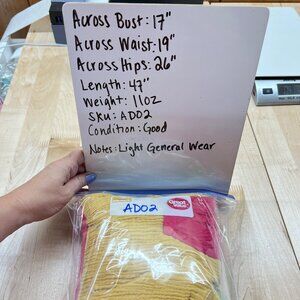 Across Bust: 17"
Across Waist: 19"
Across Hips: 26"
Length: 47"
Weight: 11oz
SKU: AD02
Condition: Good
Notes: Light General Wear
AD02
Great Value